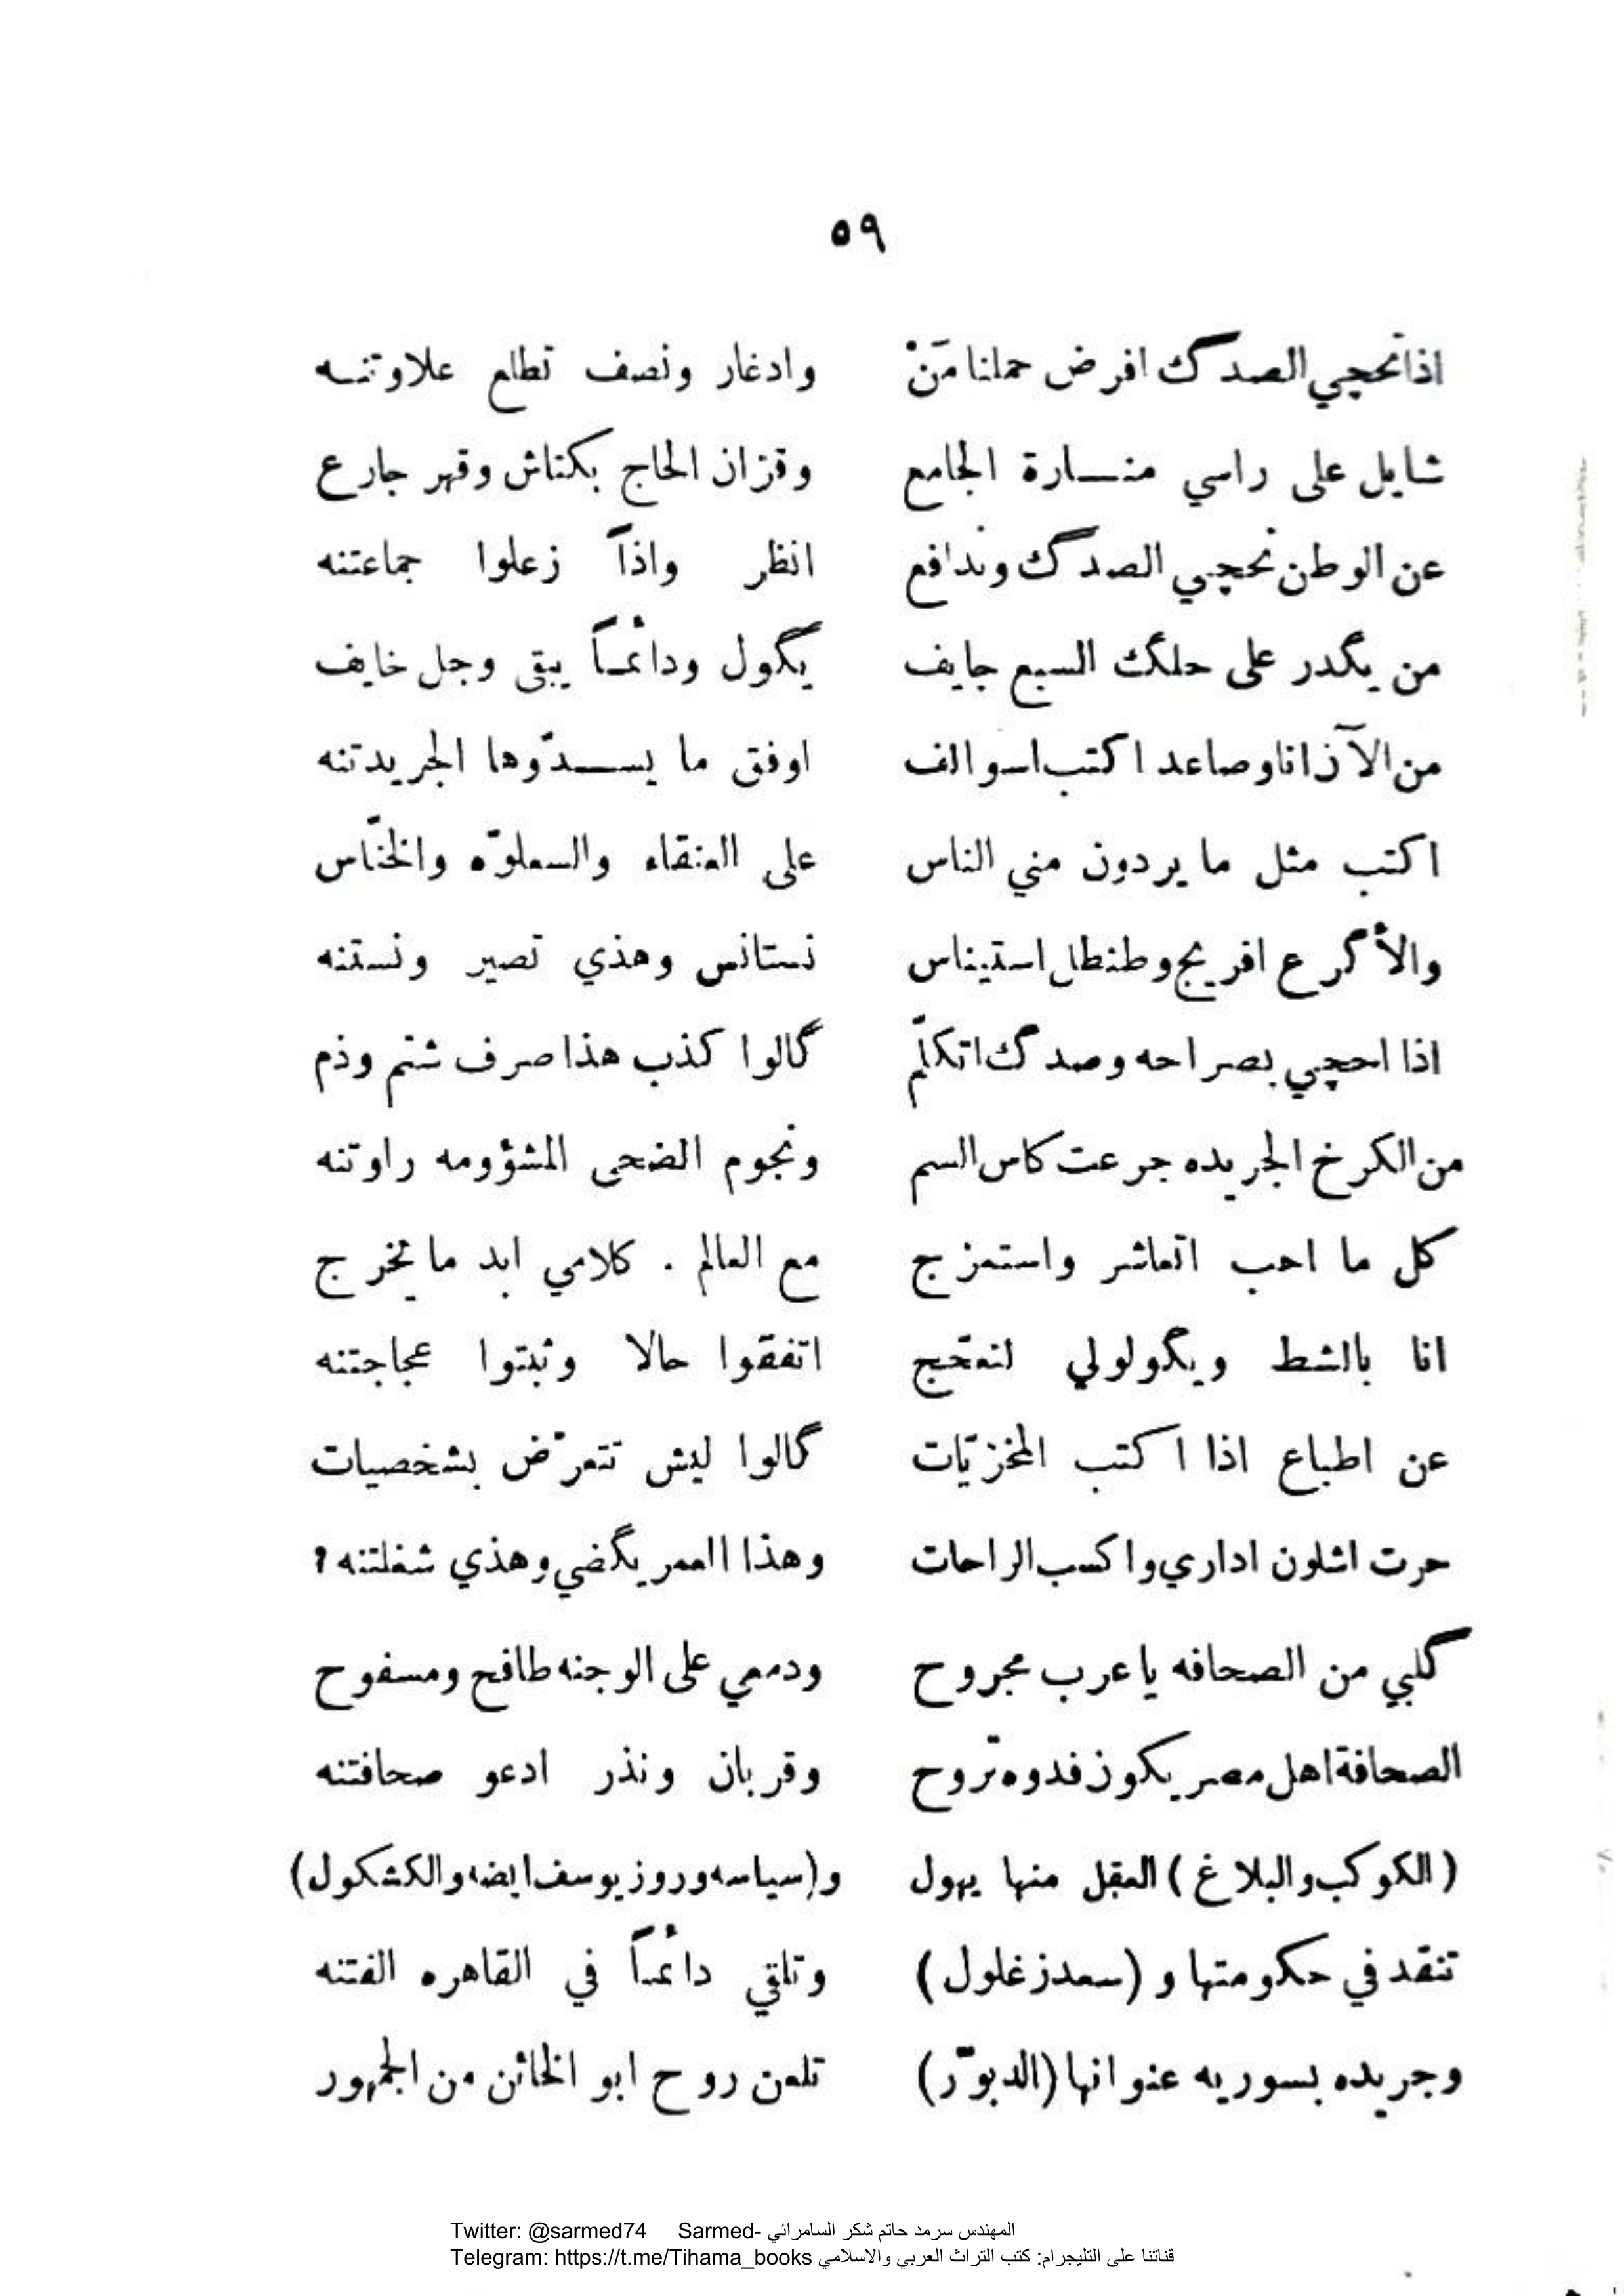 ٥٩
اذا نحچي الصدگ افرض حملنا مَنْ وادغار ونصف تطلع علاوتنـه
شايل على راسي منـــارة الجامع وقزان الحاج بكتاش وقهر جارع
عن الوطن نحچي الصدگ وندافع انظر واذاً زعلوا جماعتنه
من يگدر على حلگك السبع جايف يگول ودائمـاً يبقى وجل خايف
من الآن انا وصاعد اكتب اسوالف اوفق ما يســدّوها الجريدتنه
اكتب مثل ما يردون مني الناس على العنقاء والسعلوّه والخنّاس
والأگرع افريج وطنطل استيناس نستانس وهذي تصير ونستنه
اذا احچي بصراحه وصدگ اتكلّم گالوا كذب هذا صرف شتم وذم
من الكرخ الجريده جرعت كاس السم ونجوم الضحى المشؤومه راوتنه
كل ما احب اتعاشر واستمزج مع العالم . كلامي ابد ما يخرج
انا بالشط ويگولولي لتعجّج اتفقوا حالا وثبتوا عجاجتنه
عن اطباع اذا اكتب المخزيّات گالوا ليش تتعرّض بشخصيات
حرت اشلون اداري واكسب الراحات وهذا العمر يگضي وهذي شغلتنه ؟
گلبي من الصحافه يا عرب مجروح ودمعي على الوجنه طافح ومسفوح
الصحافة اهل مصر يكون فدوه تّروح وقربان ونذر ادعو صحافتنه
(الكوكب والبلاغ) العقل منها يهول و(سياسه وروز يوسف ايضه والكشكول)
تنقد في حكومتها و (سعد زغلول) وتلقي دائمـاً في القاهره الفتنه
وجريده بسوريه عنوانها (الدبوّر) تلعن روح ابو الخائن من الجمهور
Twitter: @sarmed74 Sarmed- المهندس سرمد حاتم شكر السامرائي
Telegram: https://t.me/Tihama_books قناتنا على التليجرام: كتب التراث العربي والاسلامي